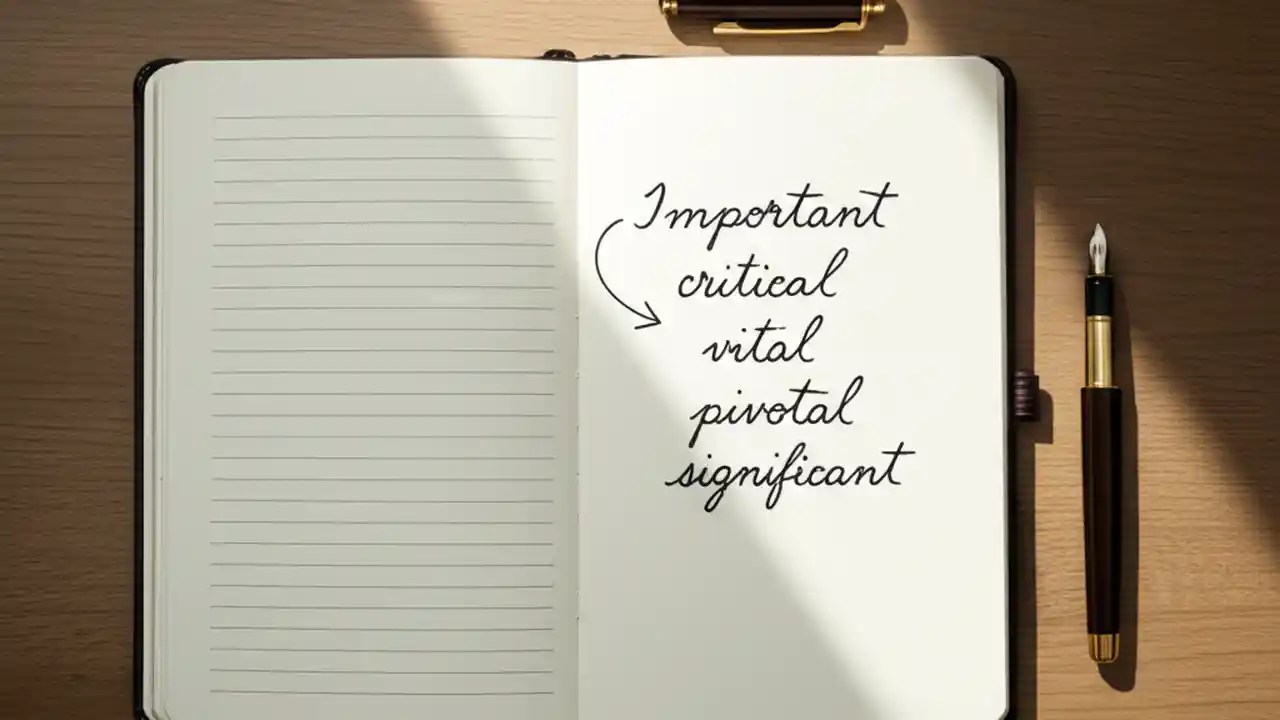 Important
critical
vital
pivotal
significant